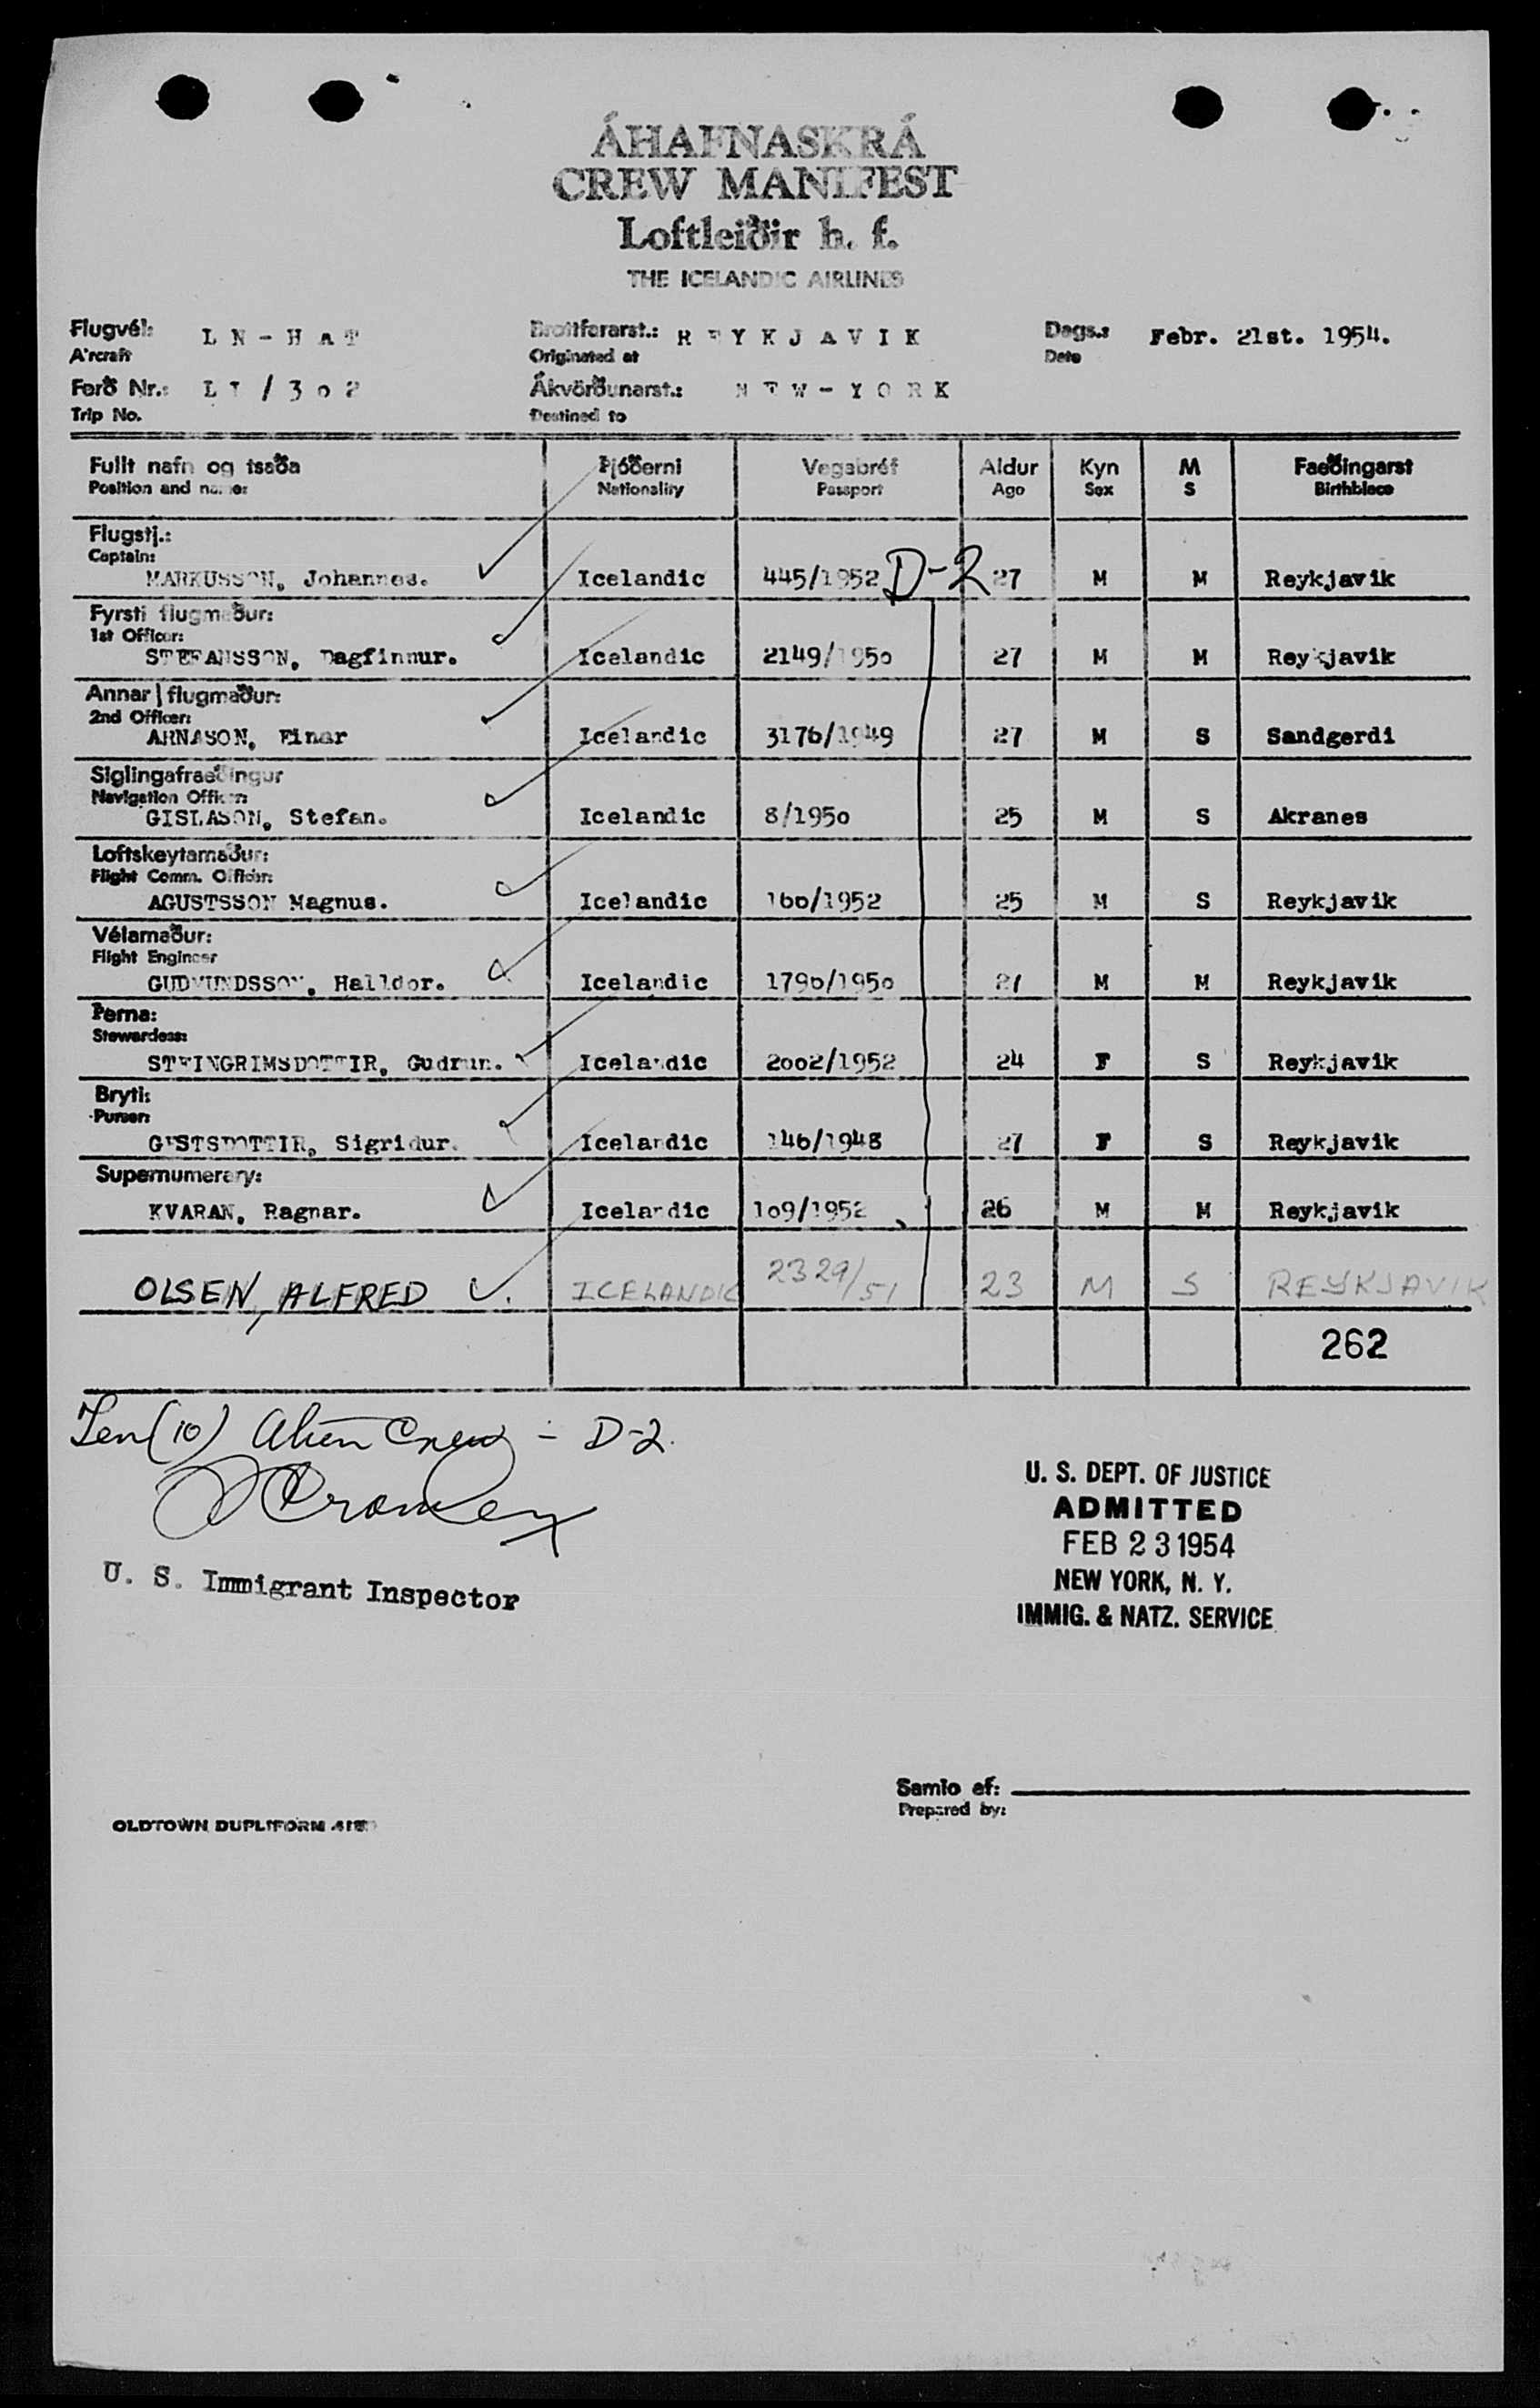 ÁHAFNASKRÁ
CREW MANIFEST
Loftleiðir h. f.
THE ICELANDIC AIRLINES
Flugvél: LN-HAT Brottfararst.: REYKJAVIK Dags.: Febr. 21st. 1954.
Aircraft Originated at Date
Ferð Nr.: LL/3o2 Ákvörðunarst.: NEW-YORK
Trip No. Destined to
Fullt nafn og tsaða Þjóðerni Vegabréf Aldur Kyn M Faeðingarst
Position and name: Nationality Passport Age Sex S Birthblace
Flugstj.:
Captain:
MARKUSSON, Johannes. Icelandic 445/1952 D-2 27 M M Reykjavik
Fyrsti flugmaður:
1st Officer:
STEFANSSON, Dagfinnur. Icelandic 2149/195o 27 M M Reykjavik
Annar flugmaður:
2nd Officer:
ARNASON, Einar Icelandic 3176/1949 27 M S Sandgerdi
Siglingafraeðingur
Navigation Officer:
GISLASON, Stefan. Icelandic 8/195o 25 M S Akranes
Loftskeytamaður:
Flight Comm. Officer:
AGUSTSSON Magnus. Icelandic 16o/1952 25 M S Reykjavik
Vélamaður:
Flight Engineer
GUDMUNDSSON, Halldor. Icelandic 179o/195o 27 M M Reykjavik
Þerna:
Stewardess:
STEINGRIMSDOTTIR, Gudrun. Icelandic 2oo2/1952 24 F S Reykjavik
Bryti:
Purser:
GESTSDOTTIR, Sigridur. Icelandic 146/1948 27 F S Reykjavik
Supernumerary:
KVARAN, Ragnar. Icelandic 1o9/1952 26 M M Reykjavik
OLSEN, ALFRED ICELANDIC 2329/51 23 M S REYKJAVIK
262
Ten (10) Alien Crew - D-2.
U. S. Immigrant Inspector
U. S. DEPT. OF JUSTICE
ADMITTED
FEB 23 1954
NEW YORK, N. Y.
IMMIG. & NATZ. SERVICE
Samio af:
Prepared by:
OLDTOWN DUPLIFORM